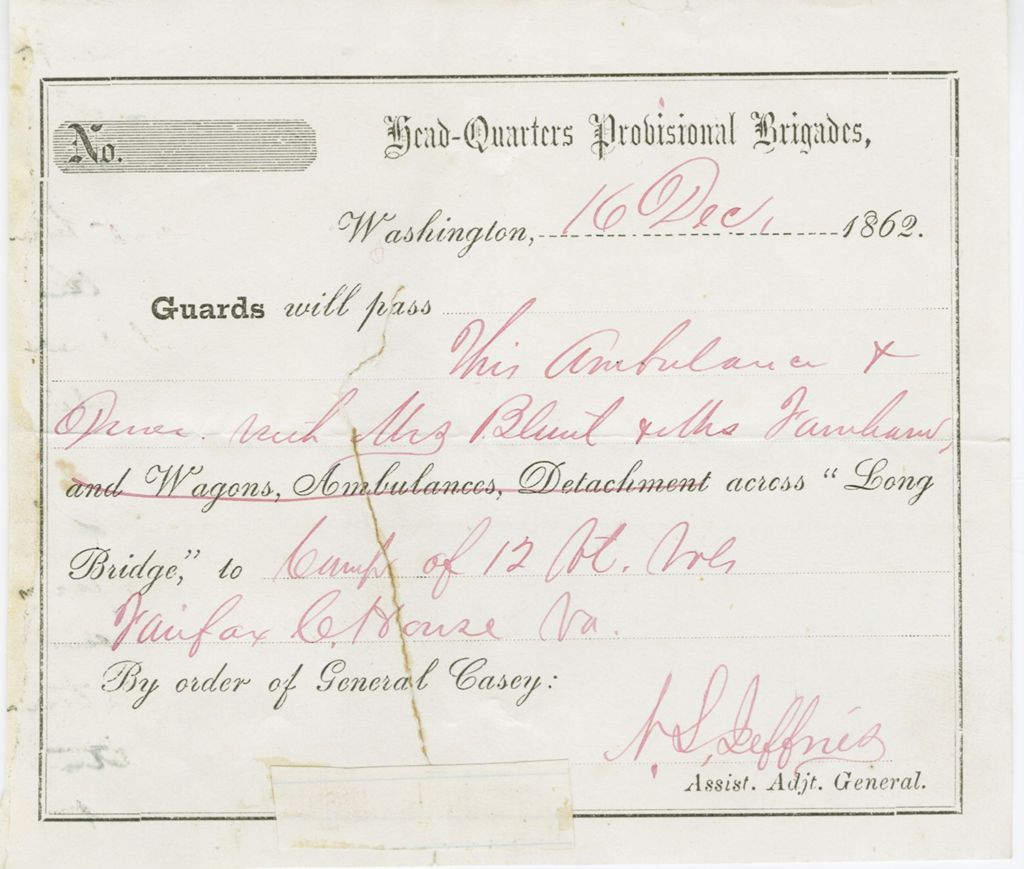 No.
Head-Quarters Provisional Brigades,
Washington, 16 Dec, 1862.
Guards will pass
This Ambulance &
Driver with Mrs Blunt & Mrs Farnham,
and Wagons, Ambulances, Detachment across "Long
Bridge," to Camp of 12 Vt. Vols
Fairfax C. House Va.
By order of General Casey:
N. S. Jeffries
Assist. Adjt. General.